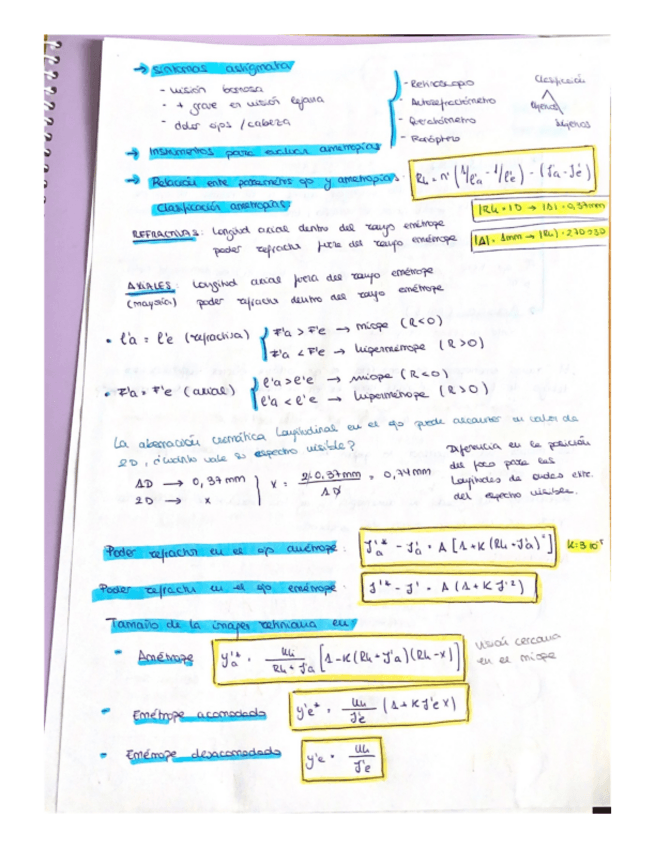 → Síntomas astígmata
- visión borrosa
- + grave en visión lejana
- dolor ojos / cabeza
→ Instrumentos para evaluar ametropías
- Retinoscopio
- Autorefractómetro
- Queratómetro
- Foróptero
Clasificación
ligeros
→ Relación entre parámetros ojo y ametropías:
Rh = n' (1/l'a - 1/l'e) - (F'a - F'e)
Clasificación ametropías:
|R|h = 1D → |Δ| = 0,37mm
|Δ| = 1mm → |R|
REFRACTIVAS: Longitud axial dentro del rango emétrope
poder refractivo fuera del rango emétrope
AXIALES: Longitud axial fuera del rango emétrope
(mayoría) poder refractivo dentro del rango emétrope
• l'a = l'e (refractiva) { F'a > F'e → miope (R<0)
F'a < F'e → hipermétrope (R>0)
• F'a = F'e (axial) { l'a > l'e → miope (R<0)
l'a < l'e → hipermétrope (R>0)
La aberración cromática longitudinal en el ojo puede alcanzar un valor de
2D, ¿cuánto vale su espectro visible?
1D → 0,37mm
2D → x
x = 2·0,37mm / 1D = 0,74mm
Diferencia en la posición
del foco para las
longitudes de ondas ext.
del espectro visible.
Poder refractivo en el ojo amétrope: F'a* - F'a = A [1+K(Rh+F'a)²] K=3·10⁻⁵
Poder refractivo en el ojo emétrope: F'* - F' = A (1+K F'²)
Tamaño de la imagen retiniana en
- Amétrope y'a* = uh / Rh + F'a [1-K(Rh+F'a)(Rh-x)]
visión cercana
en el miope
- Emétrope acomodado y'e* = uh / F'e (1+K F'e x)
- Emétrope desacomodado y'e = uh / F'e